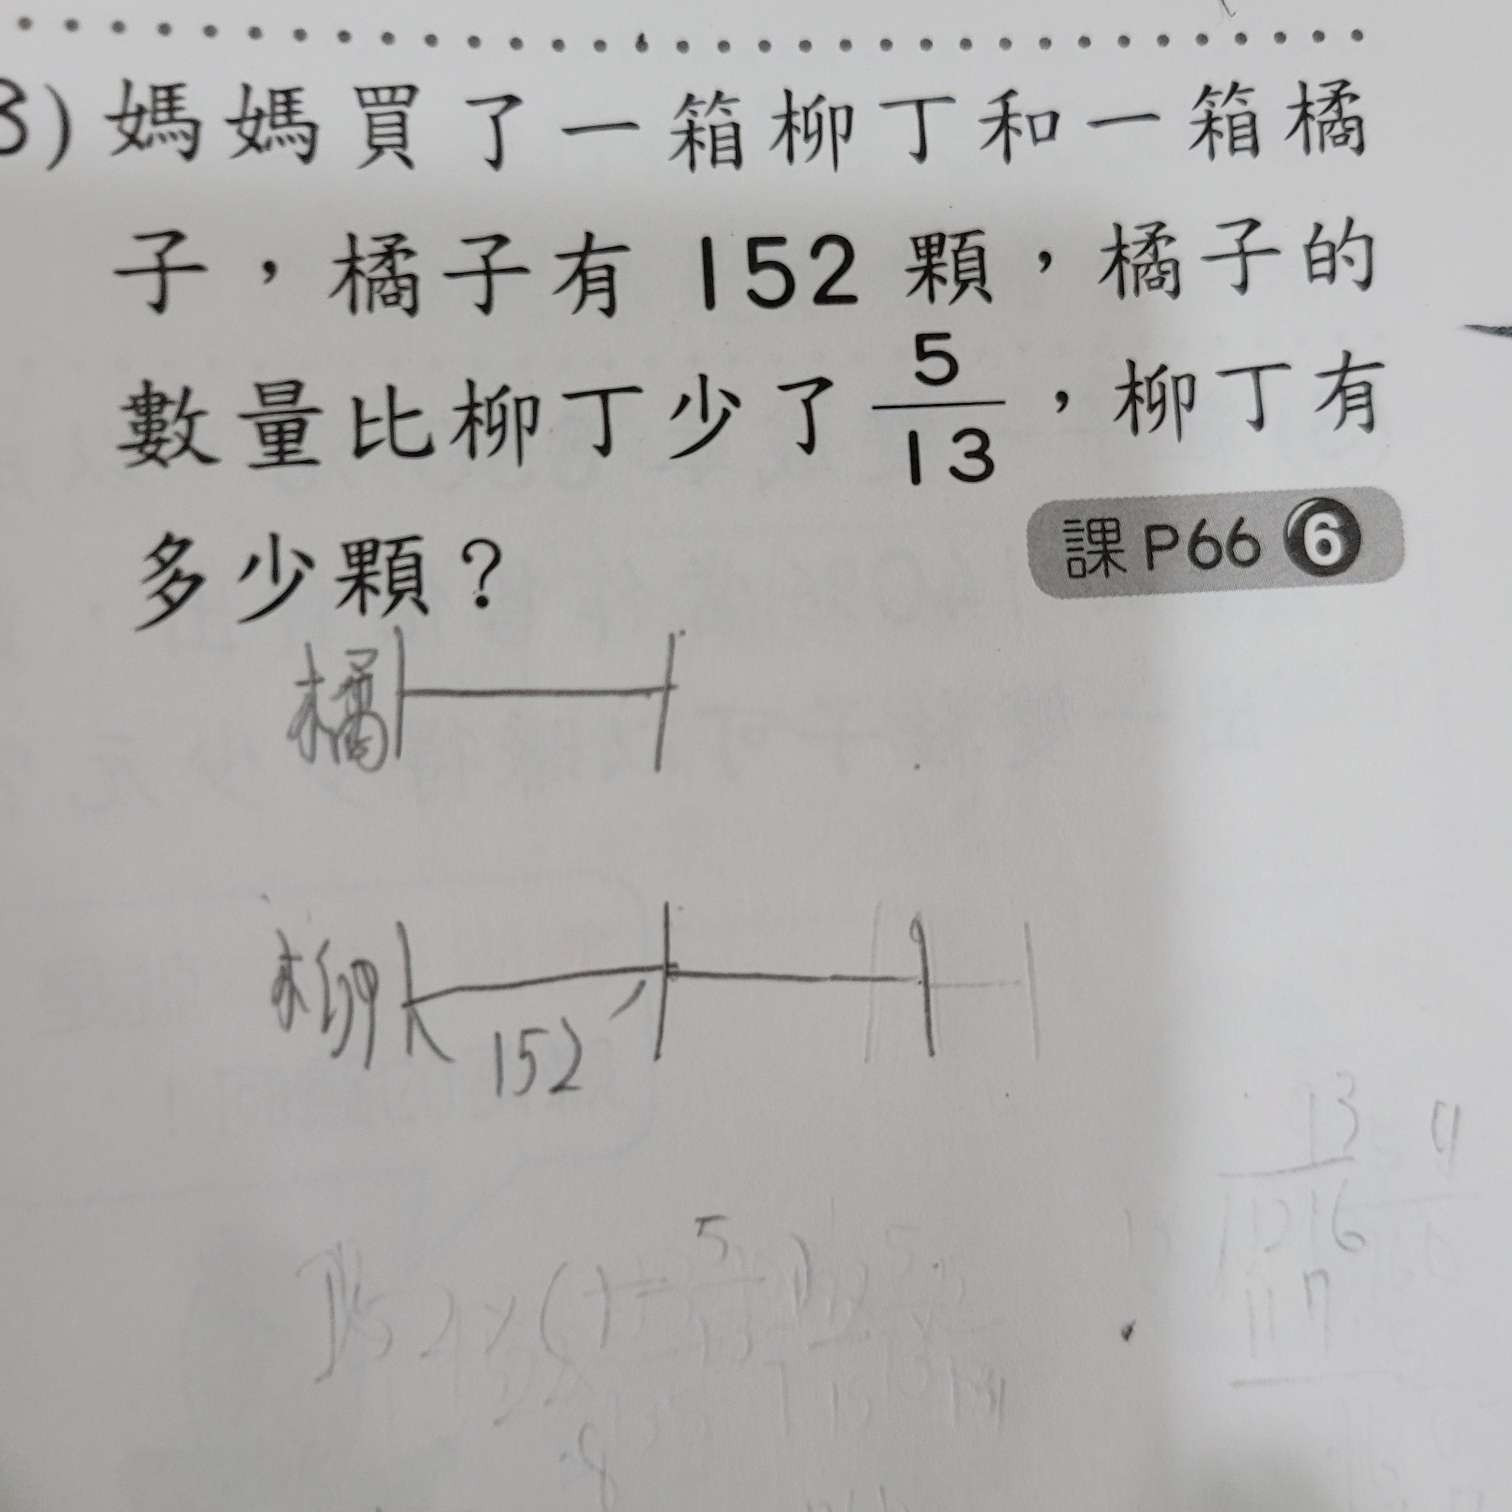 3) 媽媽買了一箱柳丁和一箱橘
子，橘子有 152 顆，橘子的
數量比柳丁少了 5/13，柳丁有
多少顆？
課 P66 6
橘
柳
152